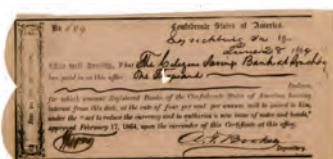 No 189
Confederate States of America.
Lynchburg Va
June 28 1864
This will Certify, That The Citizens Savings Bank of Lynchburg
has paid in at this office One Thousand
Dollars,
for which amount Registered Bonds of the Confederate States of America bearing
interest from this date, at the rate of four per cent. per annum, will be issued to him,
under the "act to reduce the currency and to authorize a new issue of notes and bonds,"
approved February 17, 1864, upon the surrender of this Certificate at this office.
Depositary.